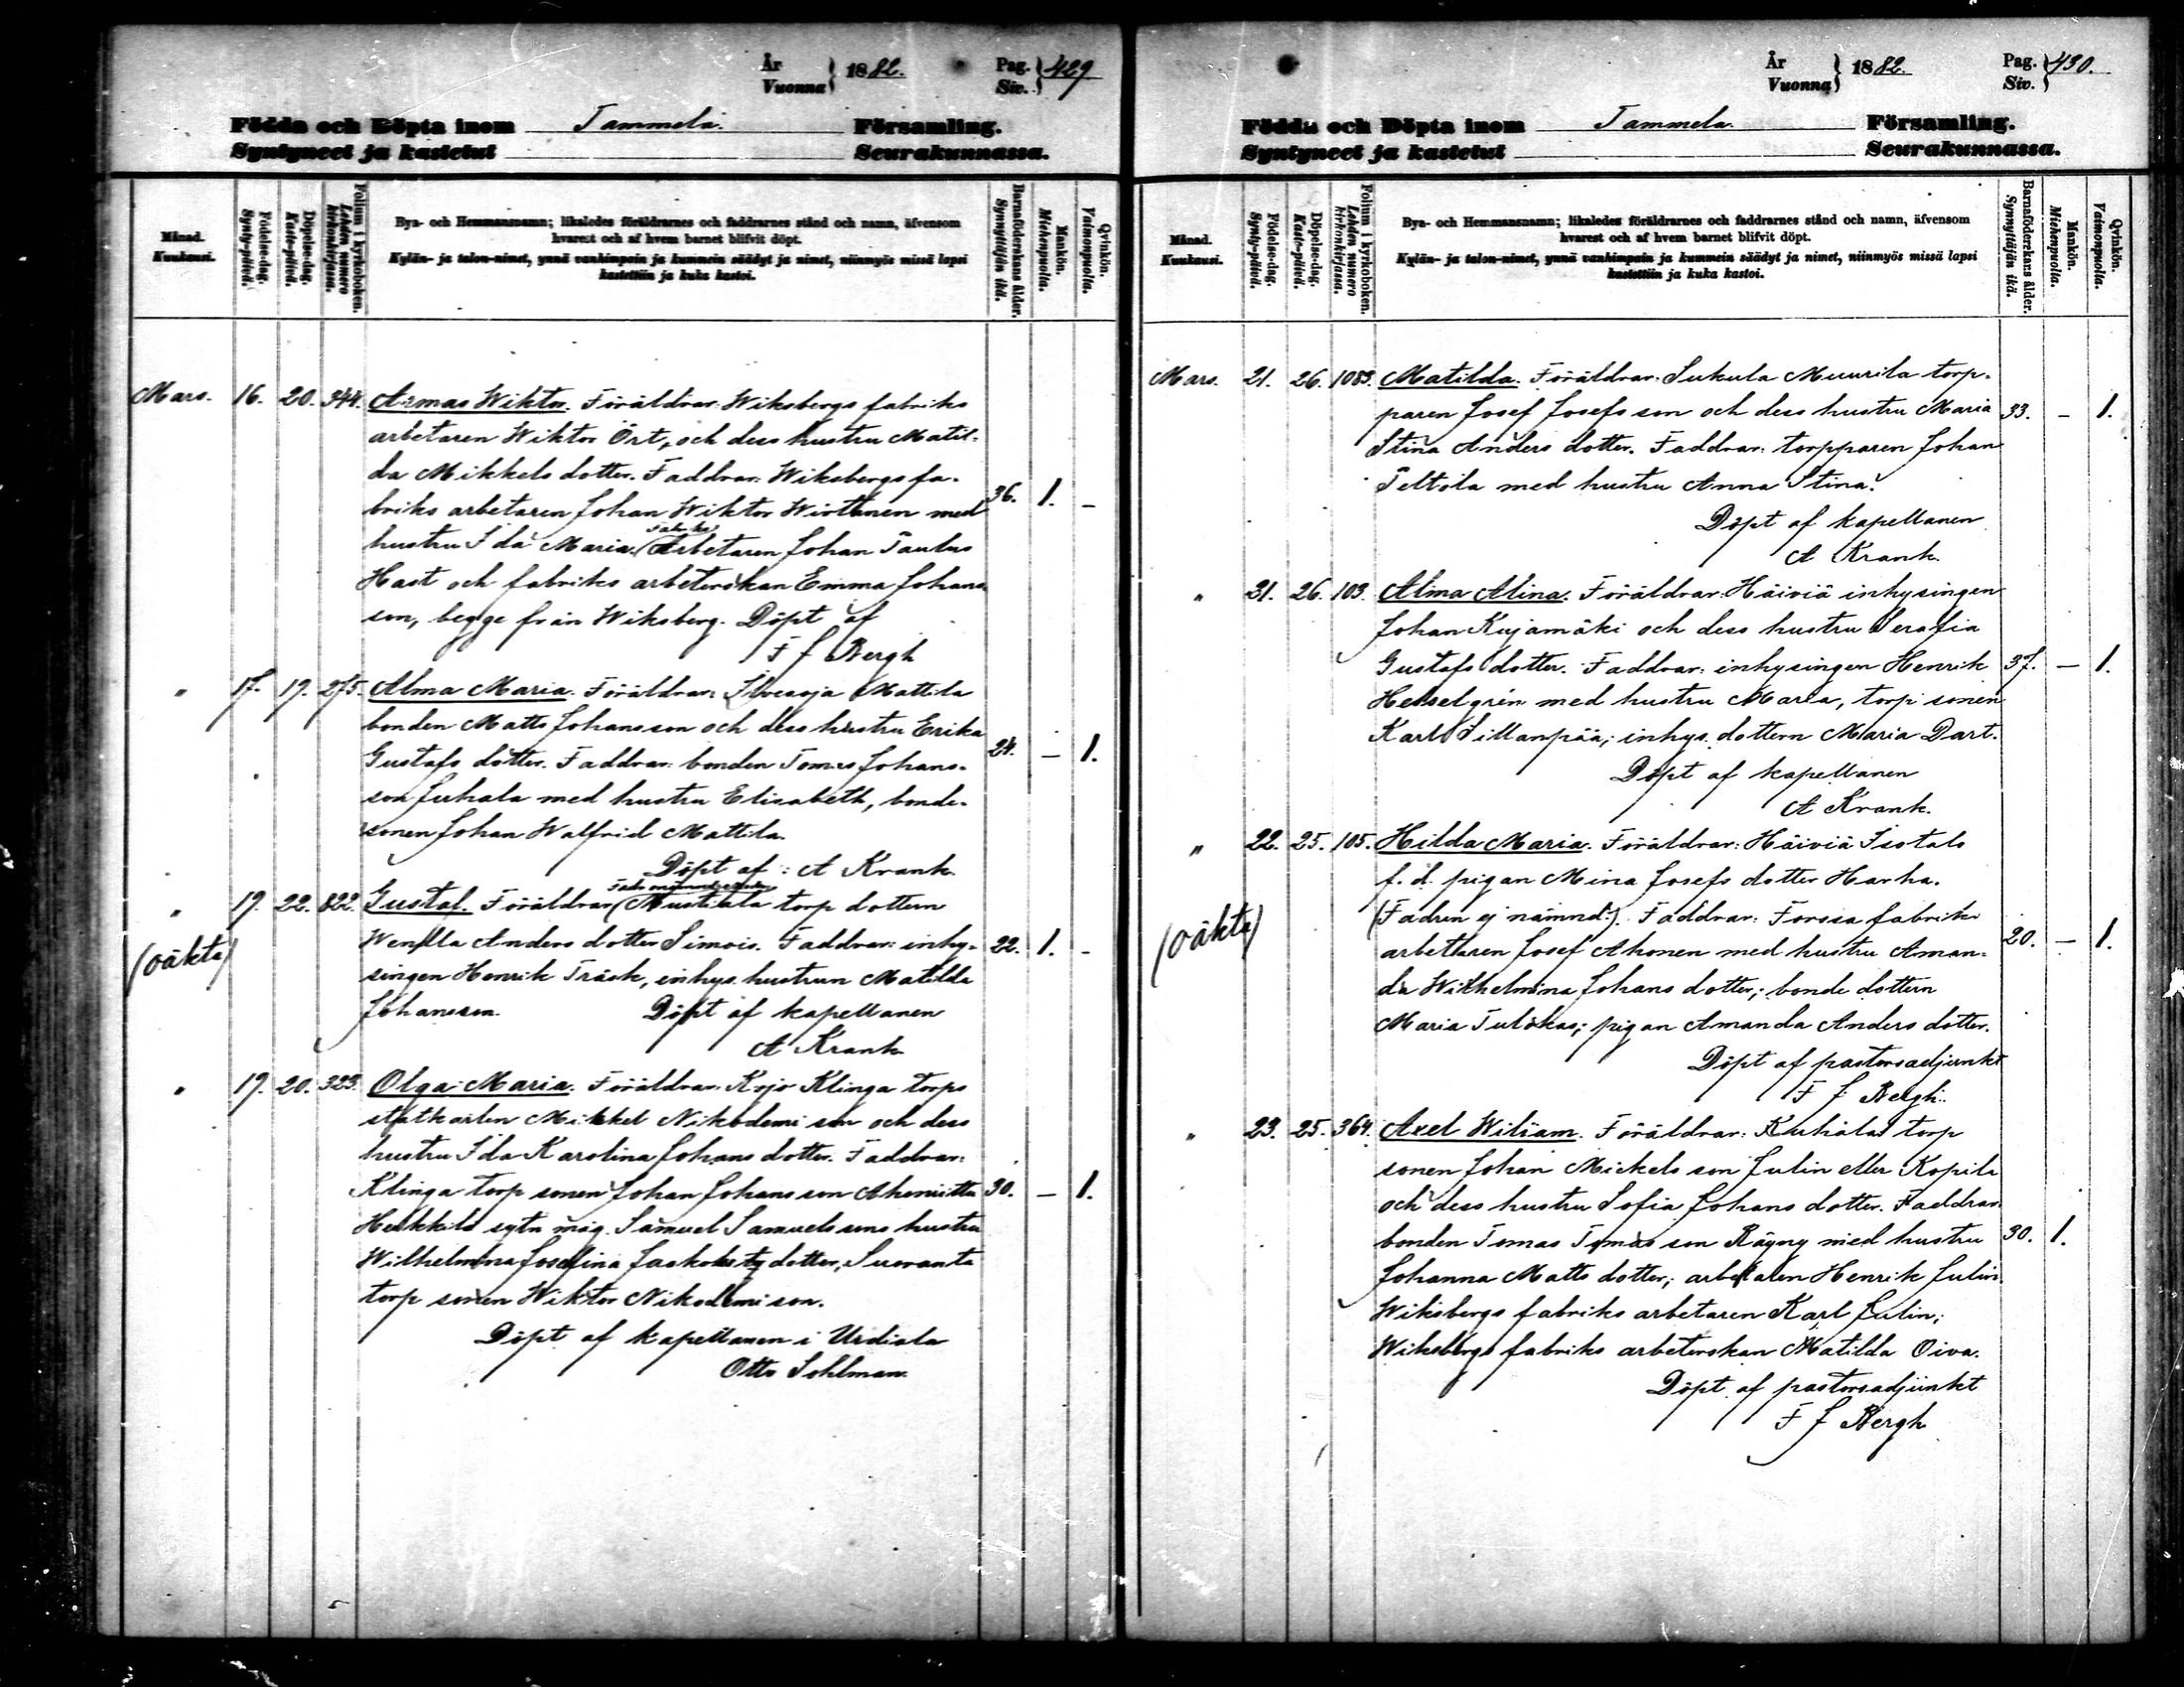 År
Vuonna } 1882.
Pag.
Siv. } 429
Födda och Döpta inom Tammela. Församling.
Syntyneet ja kastetut Seurakunnassa.
Månad.
Kuukausi.
Födelse-dag.
Synty-päivä.
Döpelse-dag.
Kaste-päivä.
Folium i kyrkoboken.
Lehden numero
kirkonkirjassa.
Bya- och Hemmansnamn; likaledes föräldrarnes och faddrarnes stånd och namn, äfvensom
hvarest och af hvem barnet blifvit döpt.
Kylän- ja talon-nimet, ynnä vanhimpain ja kummein säädyt ja nimet, niinmyös missä lapsi
kastettiin ja kuka kastoi.
Barnaföderskans ålder.
Synnyttäjän ikä.
Mankön.
Miehenpuolia.
Qvinkön.
Vaimonpuolia.
Mars. 16. 20. 944. Armas Wiktor. Föräldrar: Wiksbergs fabriks
arbetaren Wiktor Ört, och dess hustru Matil-
da Mikkels dotter. Faddrar: Wiksbergs fa-
briks arbetaren Johan Wiktor Wirtanen med 36. 1. –
hustru Ida Maria. (Fabriks) Arbetaren Johan Paulus
Hast och fabriks arbeterskan Emma Johans-
son, begge från Wiksberg. Döpt af
F J Bergh
" 17. 19. 275. Alma Maria. Föräldrar: Ilvesoja Mattila
bonden Matts Johansson och dess hustru Erika
Gustafs dotter. Faddrar: bonden Tomas Johans- 24. – 1.
son Juhala med hustru Elisabeth, bonde-
sonen Johan Walfrid Mattila.
Döpt af : A Krank
" 19. 22. 822. Gustaf. Föräldrar ( Mustiala torp dottern
(oäkta) Wendla Anders dotter Simois. Faddrar: inhy- 22. 1. –
singen Henrik Träsk, inhys. hustrun Matilda
Johansson. Döpt af kapellanen
A Krank
" 19. 20. 323. Olga Maria. Föräldrar: Kojo Klinga torps
statkarlen Mikkel Nikodemi son och dess
hustru Ida Karolina Johans dotter. Faddrar:
Klinga torp sonen Johan Johans son Ahonitta 30. – 1.
Heikkilä sytn. måg. Samuel Samuels sons hustru
Wilhelmina Josefina dotter, Suoranta
torp sonen Wiktor Nikodemi son.
Döpt af kapellanen i Urdiala
Otto Sohlman.
År
Vuonna } 1882.
Pag.
Siv. } 430.
Födda och Döpta inom Tammela. Församling.
Syntyneet ja kastetut Seurakunnassa.
Månad.
Kuukausi.
Födelse-dag.
Synty-päivä.
Döpelse-dag.
Kaste-päivä.
Folium i kyrkoboken.
Lehden numero
kirkonkirjassa.
Bya- och Hemmansnamn; likaledes föräldrarnes och faddrarnes stånd och namn, äfvensom
hvarest och af hvem barnet blifvit döpt.
Kylän- ja talon-nimet, ynnä vanhimpain ja kummein säädyt ja nimet, niinmyös missä lapsi
kastettiin ja kuka kastoi.
Barnaföderskans ålder.
Synnyttäjän ikä.
Mankön.
Miehenpuolia.
Qvinkön.
Vaimonpuolia.
Mars. 21. 26. 1083. Matilda. Föräldrar: Sukula Muurila torp-
paren Josef Josefs son och dess hustru Maria 33. – 1.
Stina Anders dotter. Faddrar: torpparen Johan
Peltola med hustru Anna Stina.
Döpt af kapellanen
A Krank.
" 21. 26. 103. Alma Alina. Föräldrar: Häiviä inhysingen
Johan Kujamäki och dess hustru Serafia
Gustafs dotter. Faddrar: inhysingen Henrik 37. – 1.
Hesselgrén med hustru Maria, torp sonen
Karl Sillanpää; inhys. dottern Maria Dart.
Döpt af kapellanen
A Krank.
" 22. 25. 105. Hilda Maria. Föräldrar: Häiviä Isotalo
f. d. pigan Mina Josefs dotter Harha.
(oäkta) (Fadren ej nämnd.). Faddrar: Forssa fabriks
arbetaren Josef Ahonen med hustru Aman- 20. – 1.
da Wilhelmina Johans dotter; bonde dottern
Maria Tulokas; pigan Amanda Anders dotter.
Döpt af pastorsadjunkt
F J Bergh.
" 23. 25. 364. Axel Wiliam. Föräldrar: Kuhala torp
sonen Johan Mickels son Julin eller Kopila
och dess hustru Sofia Johans dotter. Faddrar:
bonden Tomas Tomas son Räyny med hustru 30. 1.
Johanna Matts dotter; arbetaren Henrik Julin
Wiksbergs fabriks arbetaren Karl Julin;
Wiksbergs fabriks arbeterskan Matilda Oiva.
Döpt af pastorsadjunkt
F J Bergh